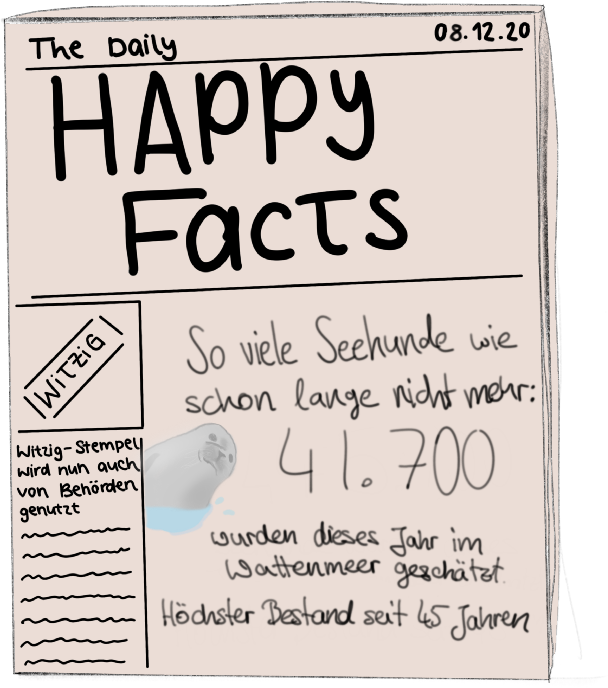 The Daily
08.12.20
HAppy
Facts
WiTZiG
Witzig-Stempel
wird nun auch
von Behörden
genutzt
So viele Seehunde wie
schon lange nicht mehr:
41.700
wurden dieses Jahr im
Wattenmeer geschätzt.
Höchster Bestand seit 45 Jahren